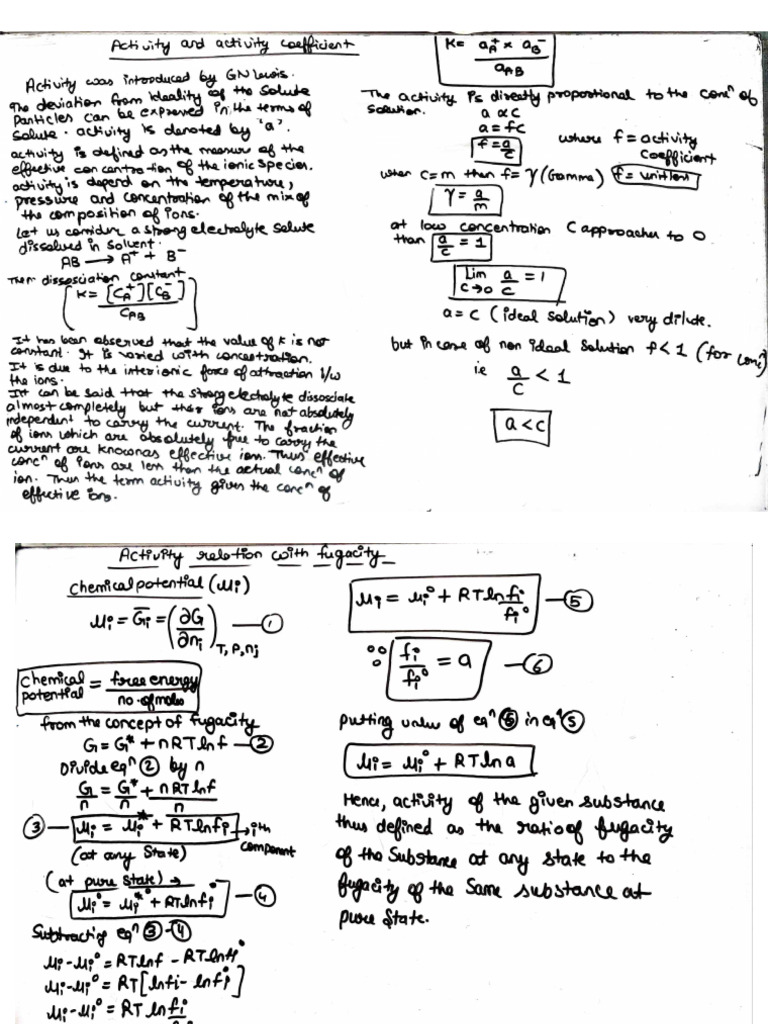 Activity and activity coefficient
Activity was introduced by GN Lewis.
The deviation from ideality of the solute
particles can be expressed in the terms of
solute. activity is denoted by 'a'.
activity is defined as the measure of the
effective concentration of the ionic species.
activity is depend on the temperature,
pressure and concentration of the mix of
the composition of ions.
Let us consider a strong electrolyte solute
dissolved in solvent.
AB → A⁺ + B⁻
Then dissosciation constant
K = [C_A⁺][C_B⁻] / C_AB
It has been observed that the value of K is not
constant. It is varied with concentration.
It is due to the interionic force of attraction b/w
the ions.
It can be said that the strong electrolyte dissosciate
almost completely but their ions are not absolutely
independent to carry the current. The fraction
of ions which are absolutely free to carry the
current are known as effective ions. Thus effective
concⁿ of ions are less than the actual concⁿ of
ion. Thus the term activity gives the concⁿ of
effective ions.
K = a_A⁺ × a_B⁻ / a_AB
The activity is directly proportional to the concⁿ of
solution.
a ∝ c
a = fc
f = a/c where f = activity
coefficient
when c=m then f= γ (Gamma) f = unitless
γ = a/m
at low concentration C approaches to 0
than a/c = 1
Lim c→0 a/c = 1
a = c (ideal solution) very dilute.
but in case of non ideal solution f<1 (for concⁿ)
i.e a/c < 1
a < c
Activity relation with fugacity
Chemical potential (μi)
μi = G̅i = (∂G/∂ni) T, P, nj — ①
Chemical potential = free energy / no. of moles
from the concept of fugacity
G = G* + nRT ln f — ②
Divide eqⁿ ② by n
G/n = G*/n + nRT ln f / n
③ — μi = μi* + RT ln fi → ith
component
(at any State)
(at pure state) →
μi° = μi*° + RT ln fi° — ④
Subtracting eqⁿ ③-④
μi - μi° = RT ln f - RT ln fi°
μi - μi° = RT [ln fi - ln fi°]
μi - μi° = RT ln fi
μi = μi° + RT ln fi/fi° — ⑤
∵ fi/fi° = a — ⑥
putting value of eqⁿ ⑥ in eqⁿ ⑤
μi = μi° + RT ln a
Hence, activity of the given substance
thus defined as the ratio of fugacity
of the Substance at any state to the
fugacity of the Same substance at
pure State.